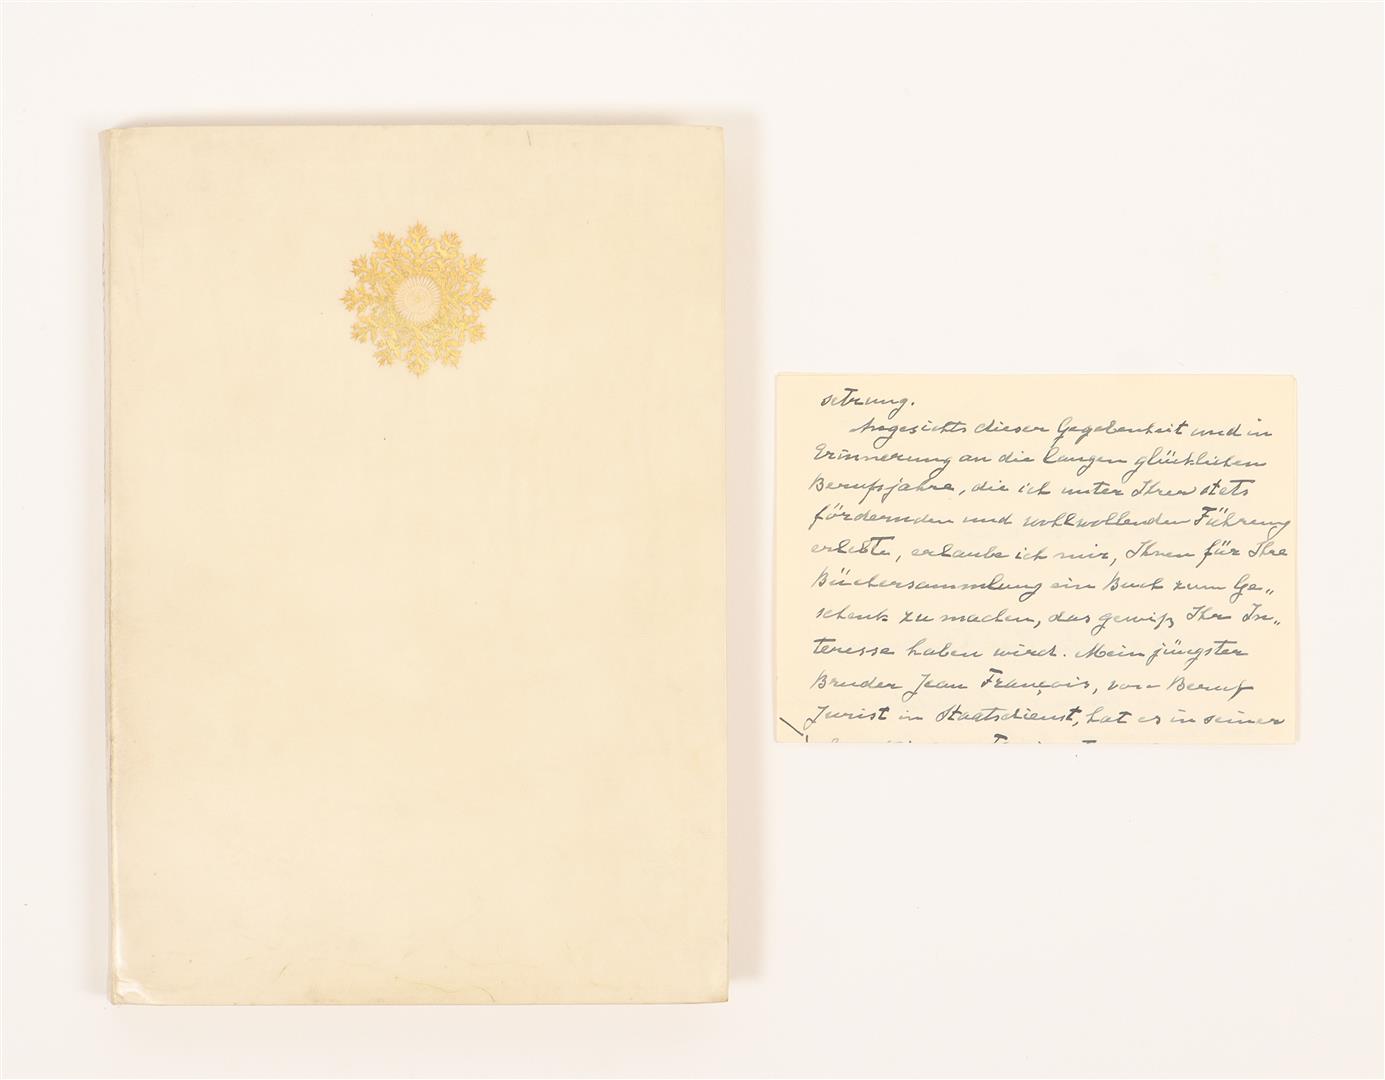 setzung.
Angesichts dieser Gegebenheit und in
Erinnerung an die langen glücklichen
Berufsjahre, die ich unter Ihrer stets
fördernden und wohlwollenden Führung
erlebte, erlaube ich mir, Ihnen für Ihre
Büchersammlung ein Buch zum Ge„
schenk zu machen, das gewiß Ihr In„
teresse haben wird. Mein jüngster
Bruder Jean François, von Beruf
Jurist im Staatsdienst, hat es in seiner